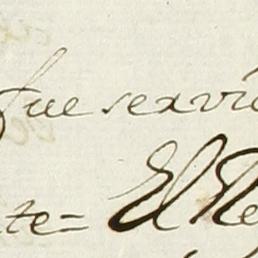 fue servi
te= El Re